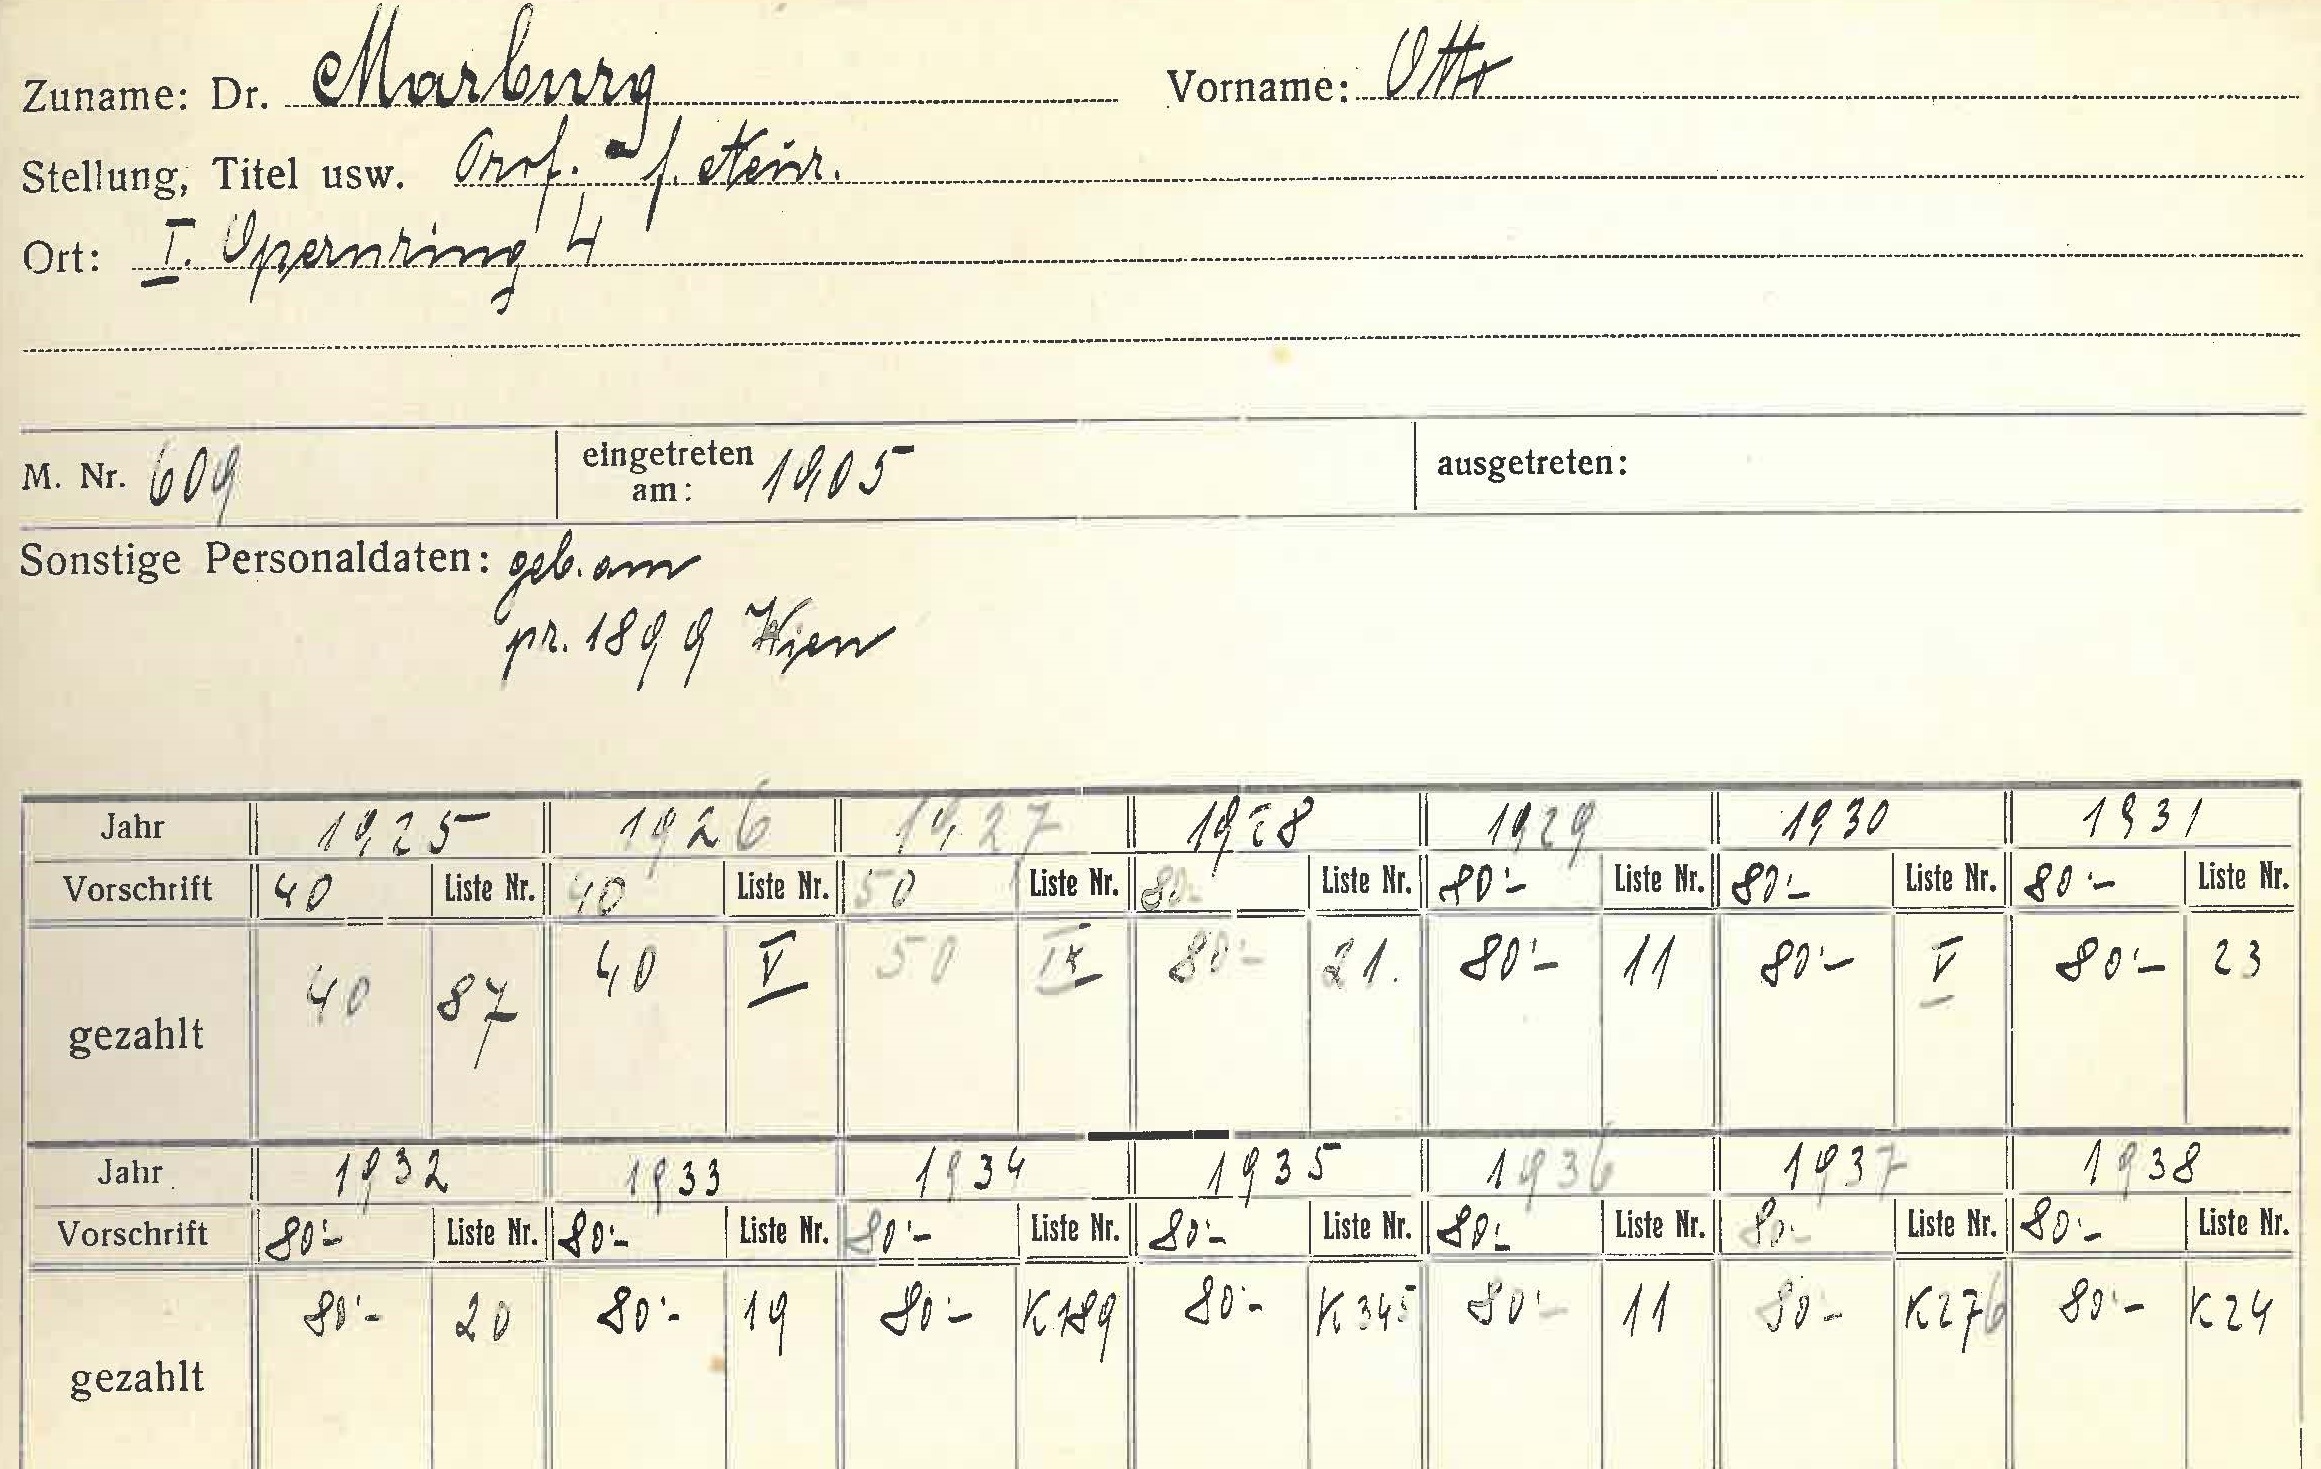 Zuname: Dr. Marburg Vorname: Otto
Stellung, Titel usw. Prof. f. Neur.
Ort: I. Opernring 4
M. Nr. 609 eingetreten am: 1905 ausgetreten:
Sonstige Personaldaten: geb. am
pr. 1899 Wien
Jahr 1925 1926 1927 1928 1929 1930 1931
Vorschrift 40 Liste Nr. 40 Liste Nr. 50 Liste Nr. 80.- Liste Nr. 80'- Liste Nr. 80'- Liste Nr. 80'- Liste Nr.
gezahlt 40 87 40 V 50 IX 80'- 21. 80'- 11 80'- V 80'- 23
Jahr 1932 1933 1934 1935 1936 1937 1938
Vorschrift 80'- Liste Nr. 80'- Liste Nr. 80'- Liste Nr. 80'- Liste Nr. 80.- Liste Nr. 80.- Liste Nr. 80'- Liste Nr.
gezahlt 80'- 20 80'- 19 80'- K189 80'- K345 80'- 11 80'- K276 80'- K24